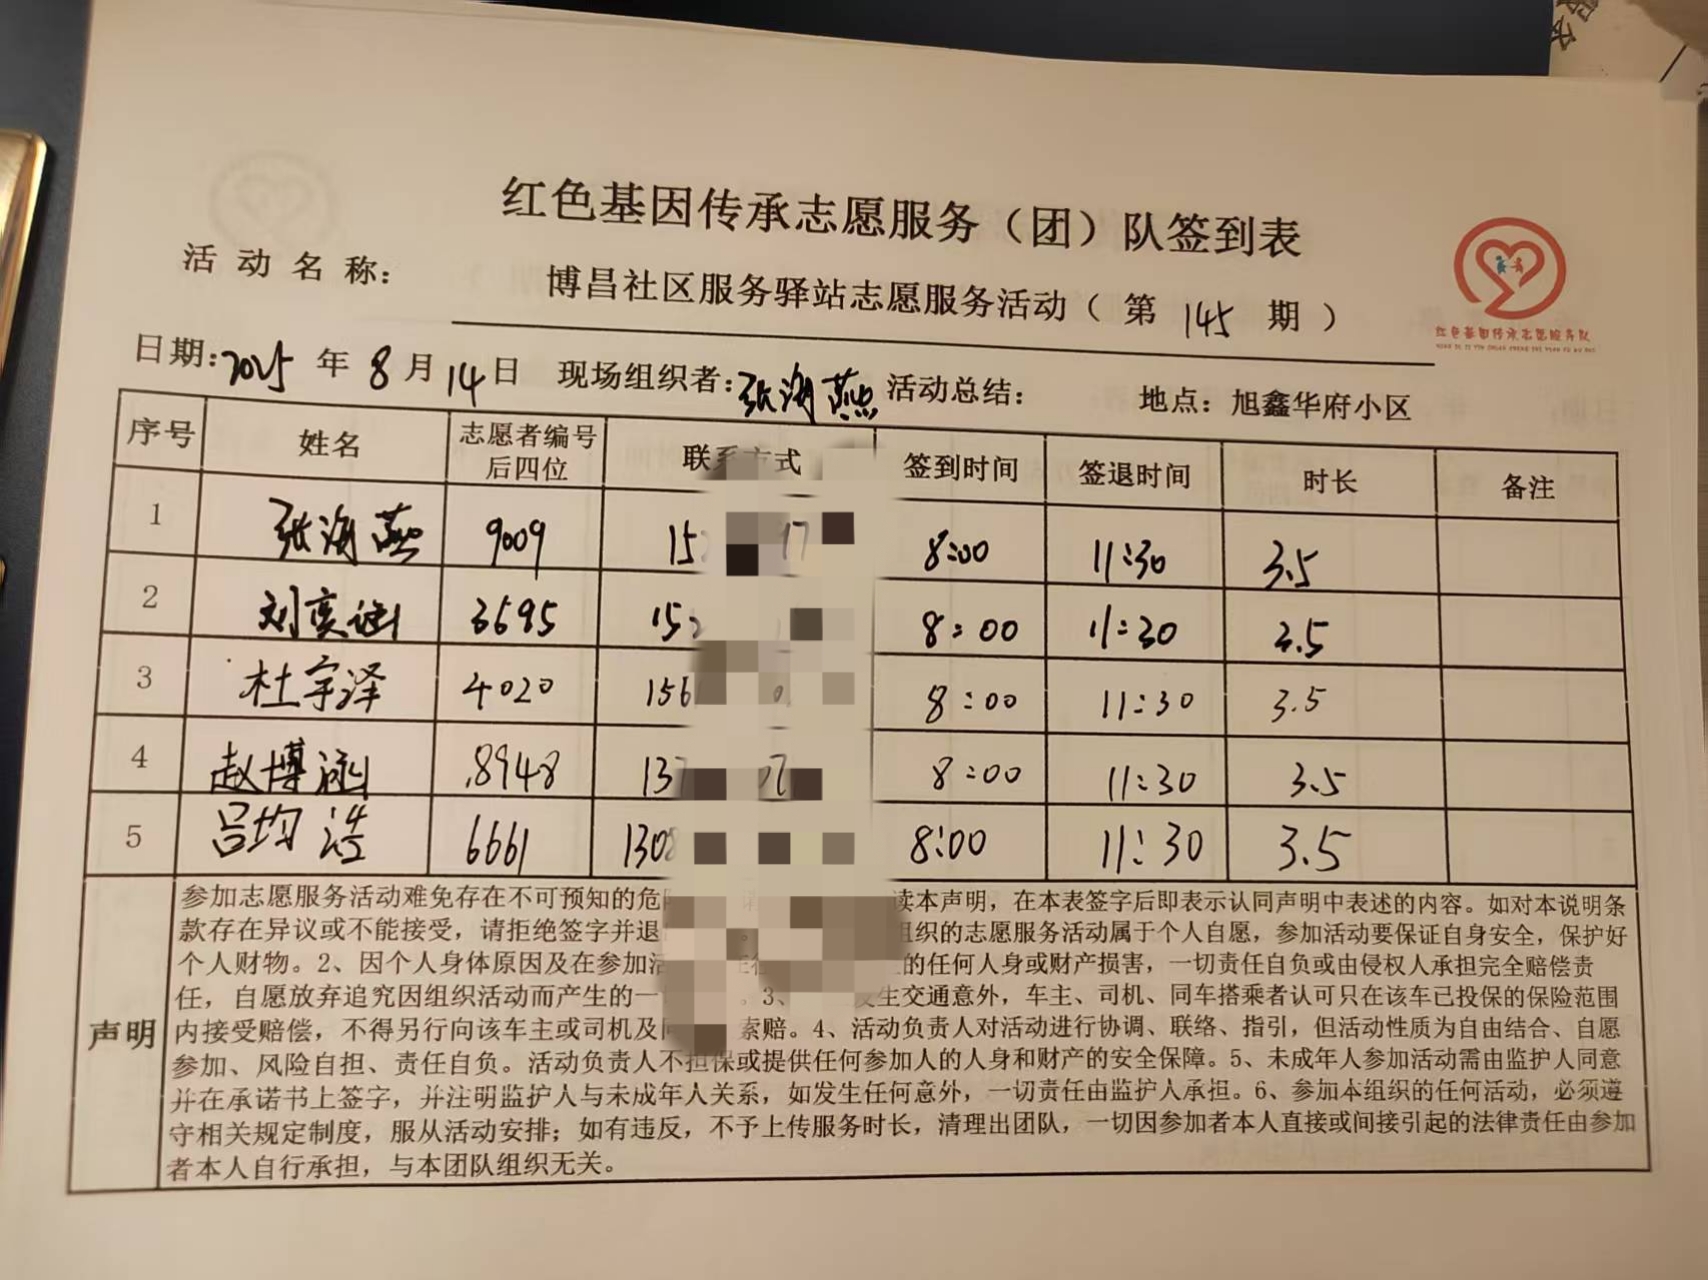 红色基因传承志愿服务（团）队签到表
活动名称： 博昌社区服务驿站志愿服务活动（第 145 期）
红色基因传承志愿服务队
日期：2025 年 8 月 14 日 现场组织者：张海燕 活动总结： 地点：旭鑫华府小区
序号 姓名 志愿者编号后四位 联系方式 签到时间 签退时间 时长 备注
1 张海燕 9009 15 17 8:00 11:30 3.5
2 刘奕涵 3695 152 8:00 11:30 3.5
3 杜宇泽 4020 156 8:00 11:30 3.5
4 赵博涵 8948 137 8:00 11:30 3.5
5 吕均浩 6661 1308 8:00 11:30 3.5
声明
参加志愿服务活动难免存在不可预知的危 读本声明，在本表签字后即表示认同声明中表述的内容。如对本说明条
款存在异议或不能接受，请拒绝签字并退 组织的志愿服务活动属于个人自愿，参加活动要保证自身安全，保护好
个人财物。2、因个人身体原因及在参加活 的任何人身或财产损害，一切责任自负或由侵权人承担完全赔偿责
任，自愿放弃追究因组织活动而产生的一 。3、 发生交通意外，车主、司机、同车搭乘者认可只在该车已投保的保险范围
内接受赔偿，不得另行向该车主或司机及同 索赔。4、活动负责人对活动进行协调、联络、指引，但活动性质为自由结合、自愿
参加、风险自担、责任自负。活动负责人不担保或提供任何参加人的人身和财产的安全保障。5、未成年人参加活动需由监护人同意
并在承诺书上签字，并注明监护人与未成年人关系，如发生任何意外，一切责任由监护人承担。6、参加本组织的任何活动，必须遵
守相关规定制度，服从活动安排；如有违反，不予上传服务时长，清理出团队，一切因参加者本人直接或间接引起的法律责任由参加
者本人自行承担，与本团队组织无关。